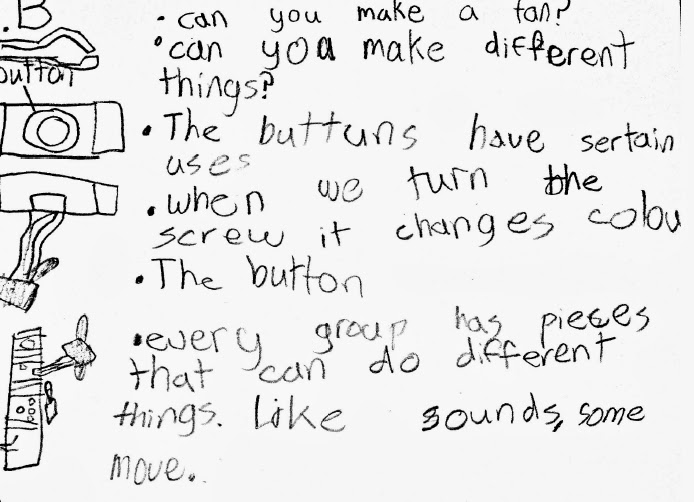 .B
• can you make a fan?
• can you make different
things?
button
• The buttuns have sertain
uses
• when we turn the
screw it changes colou
• The button
• every group has pieces
that can do different
things. Like sounds, some
move..